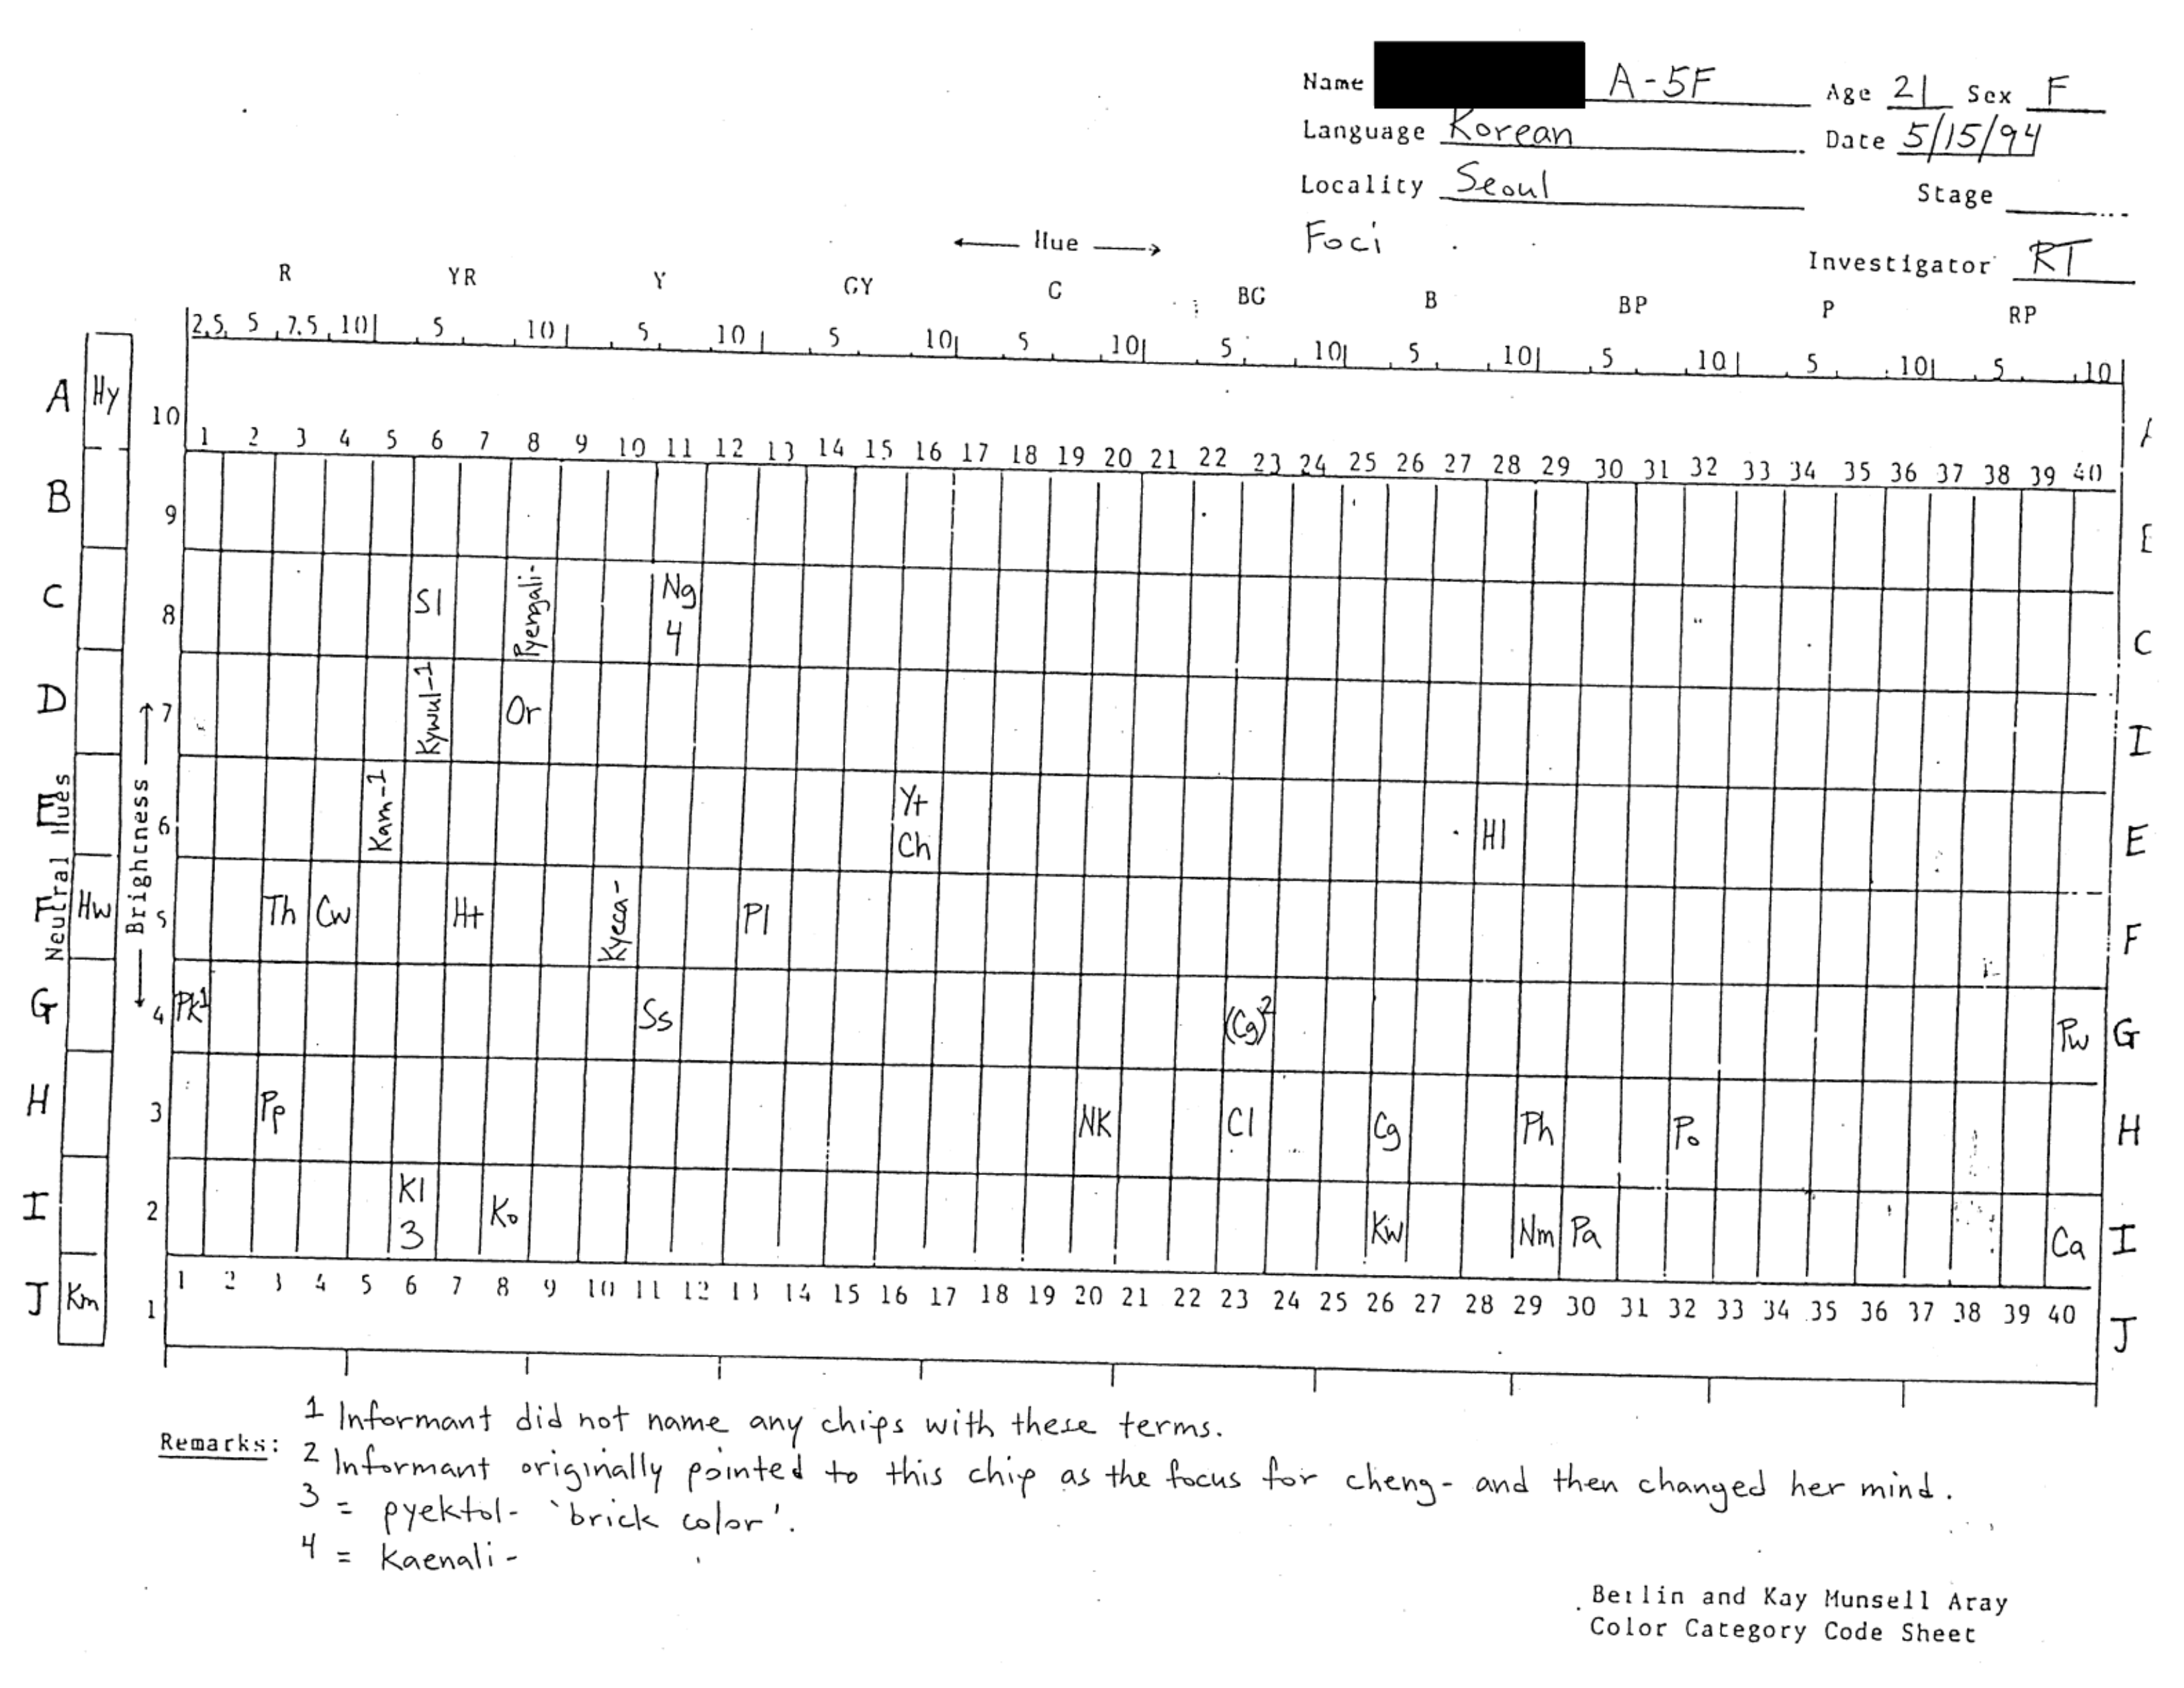 Name A-5F Age 21 Sex F
Language Korean Date 5/15/94
Locality Seoul Stage
Foci
← Hue →
Investigator RT
R YR Y GY G BG B BP P RP
2.5 5 7.5 10 5 10 5 10 5 10 5 10 5 10 5 10 5 10 5 10 5 10
A Hy 10
1 2 3 4 5 6 7 8 9 10 11 12 13 14 15 16 17 18 19 20 21 22 23 24 25 26 27 28 29 30 31 32 33 34 35 36 37 38 39 40
B 9
C 8 Sl Pyengali- Ng 4 C
D 7 Kywul-1 Or
E 6 Kam-1 Yt Ch Hl E
F Hw 5 Th Cw Ht Kyeca- Pl F
G 4 Pk1 Ss (Cg)2 Pw G
H 3 Pp NK Cl Cg Ph Po H
I 2 Kl 3 Ko Kw Nm Pa Ca I
J Km 1
1 2 3 4 5 6 7 8 9 10 11 12 13 14 15 16 17 18 19 20 21 22 23 24 25 26 27 28 29 30 31 32 33 34 35 36 37 38 39 40 J
Neutral Hues
← Brightness →
Remarks: 1 Informant did not name any chips with these terms.
2 Informant originally pointed to this chip as the focus for cheng- and then changed her mind.
3 = pyektol- 'brick color'.
4 = Kaenali-
Berlin and Kay Munsell Aray
Color Category Code Sheet